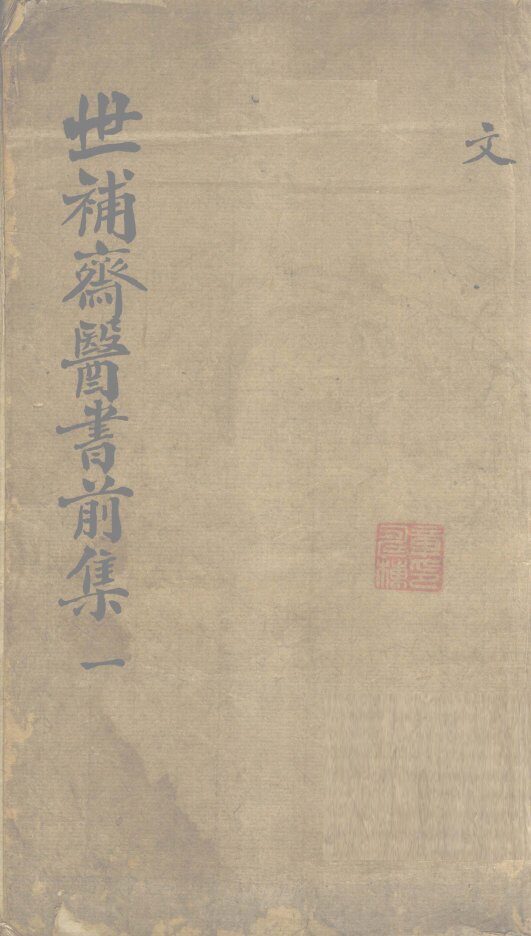 文
世補齋醫書前集 一